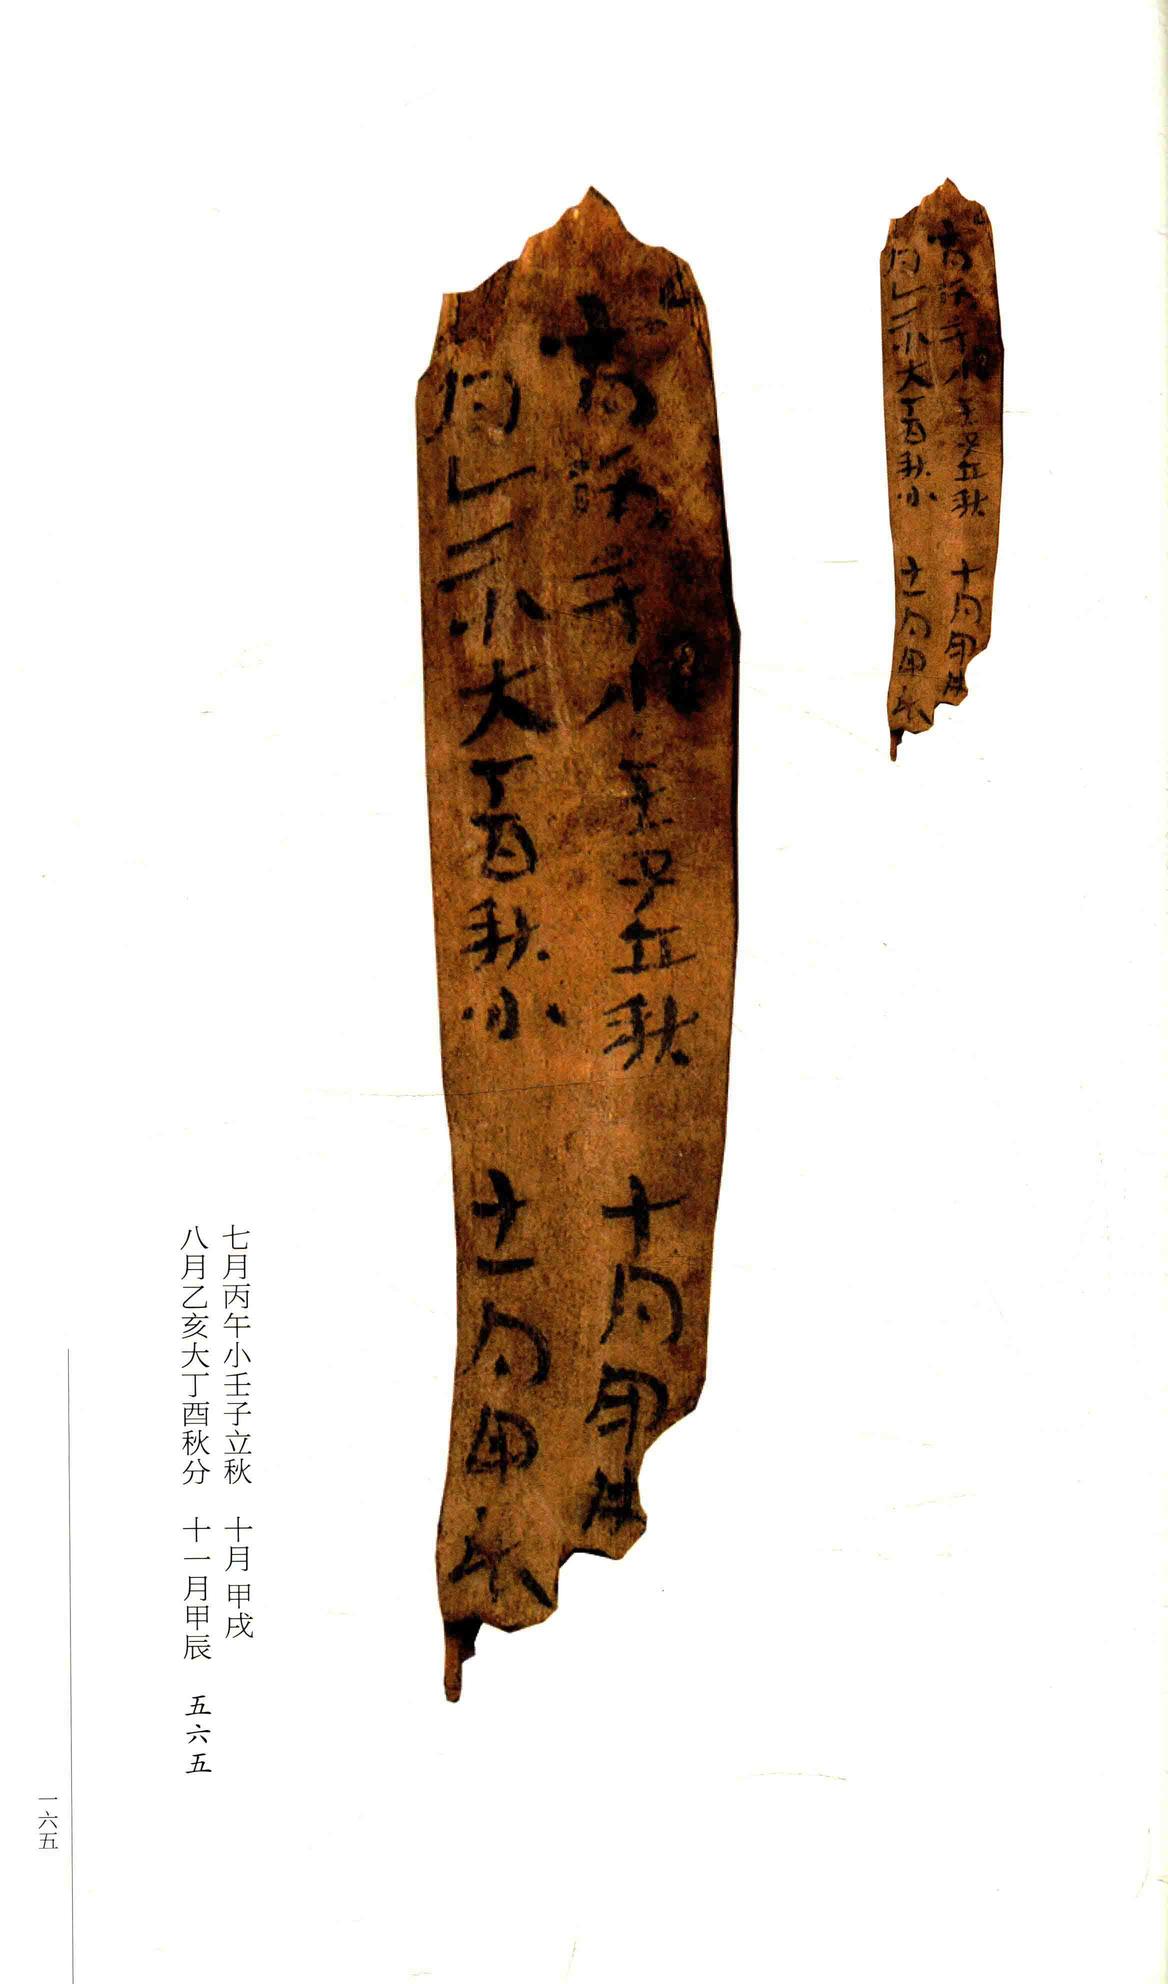 七月丙午小壬子立秋　十月甲戌
八月乙亥大丁酉秋分　十一月甲辰　五六五
一六五